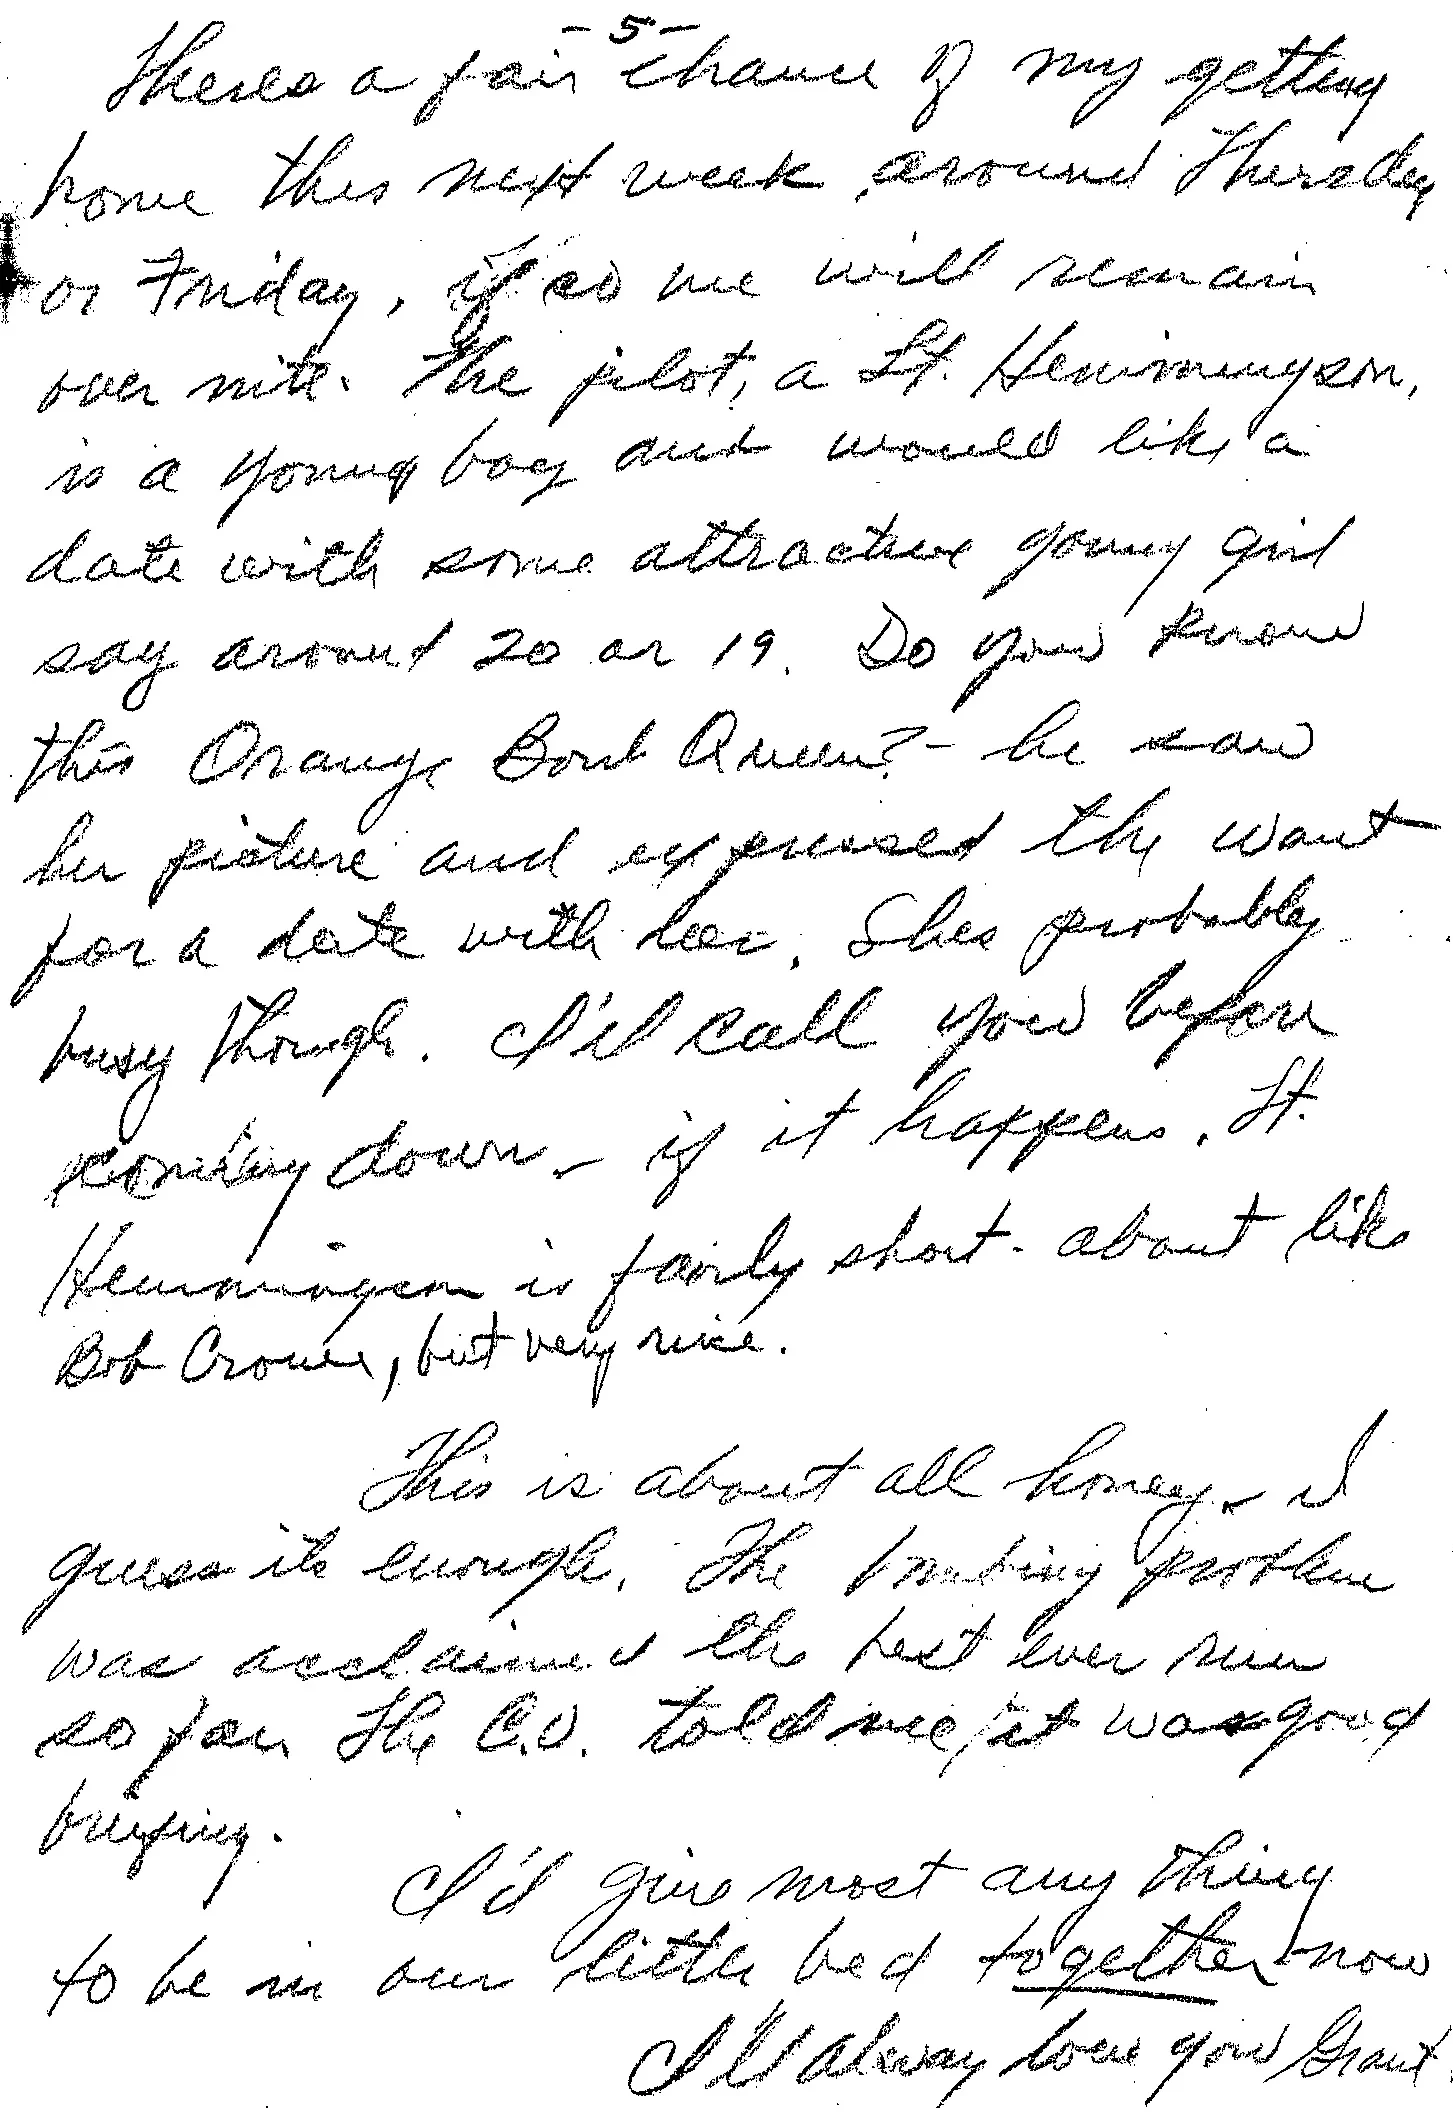 - 5 -
Theres a fair chance of my getting
home this next week, around Thursday
or Friday, if so we will remain
over nite. The pilot, a Lt. Hemmingson,
is a young boy and would like a
date with some attractive young girl
say around 20 or 19. Do you know
this Orange Bowl Queen? - he saw
her picture and expressed the want
for a date with her. Shes probably
busy though. I'd call you before
coming down - if it happens. Lt.
Hemmingson is fairly short - about like
Bob Crowe, but very nice.
This is about all honey - I
guess its enough. The bombing problem
was acclaimed the best ever run
so far. The C.O. told me it was good
briefing.
I'd give most any thing
to be in our little bed together now
I'll alway love you Grant.